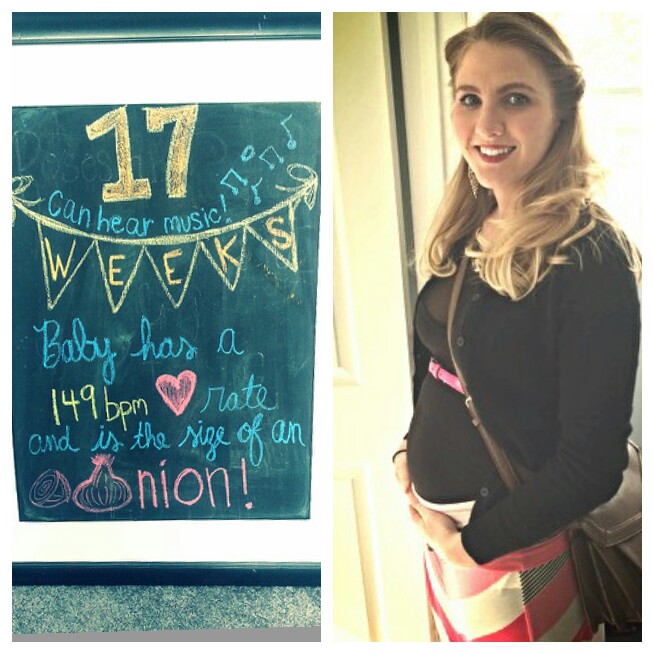 17
can hear music!
WEEKS
Baby has a
149 bpm rate
and is the size of an
nion!